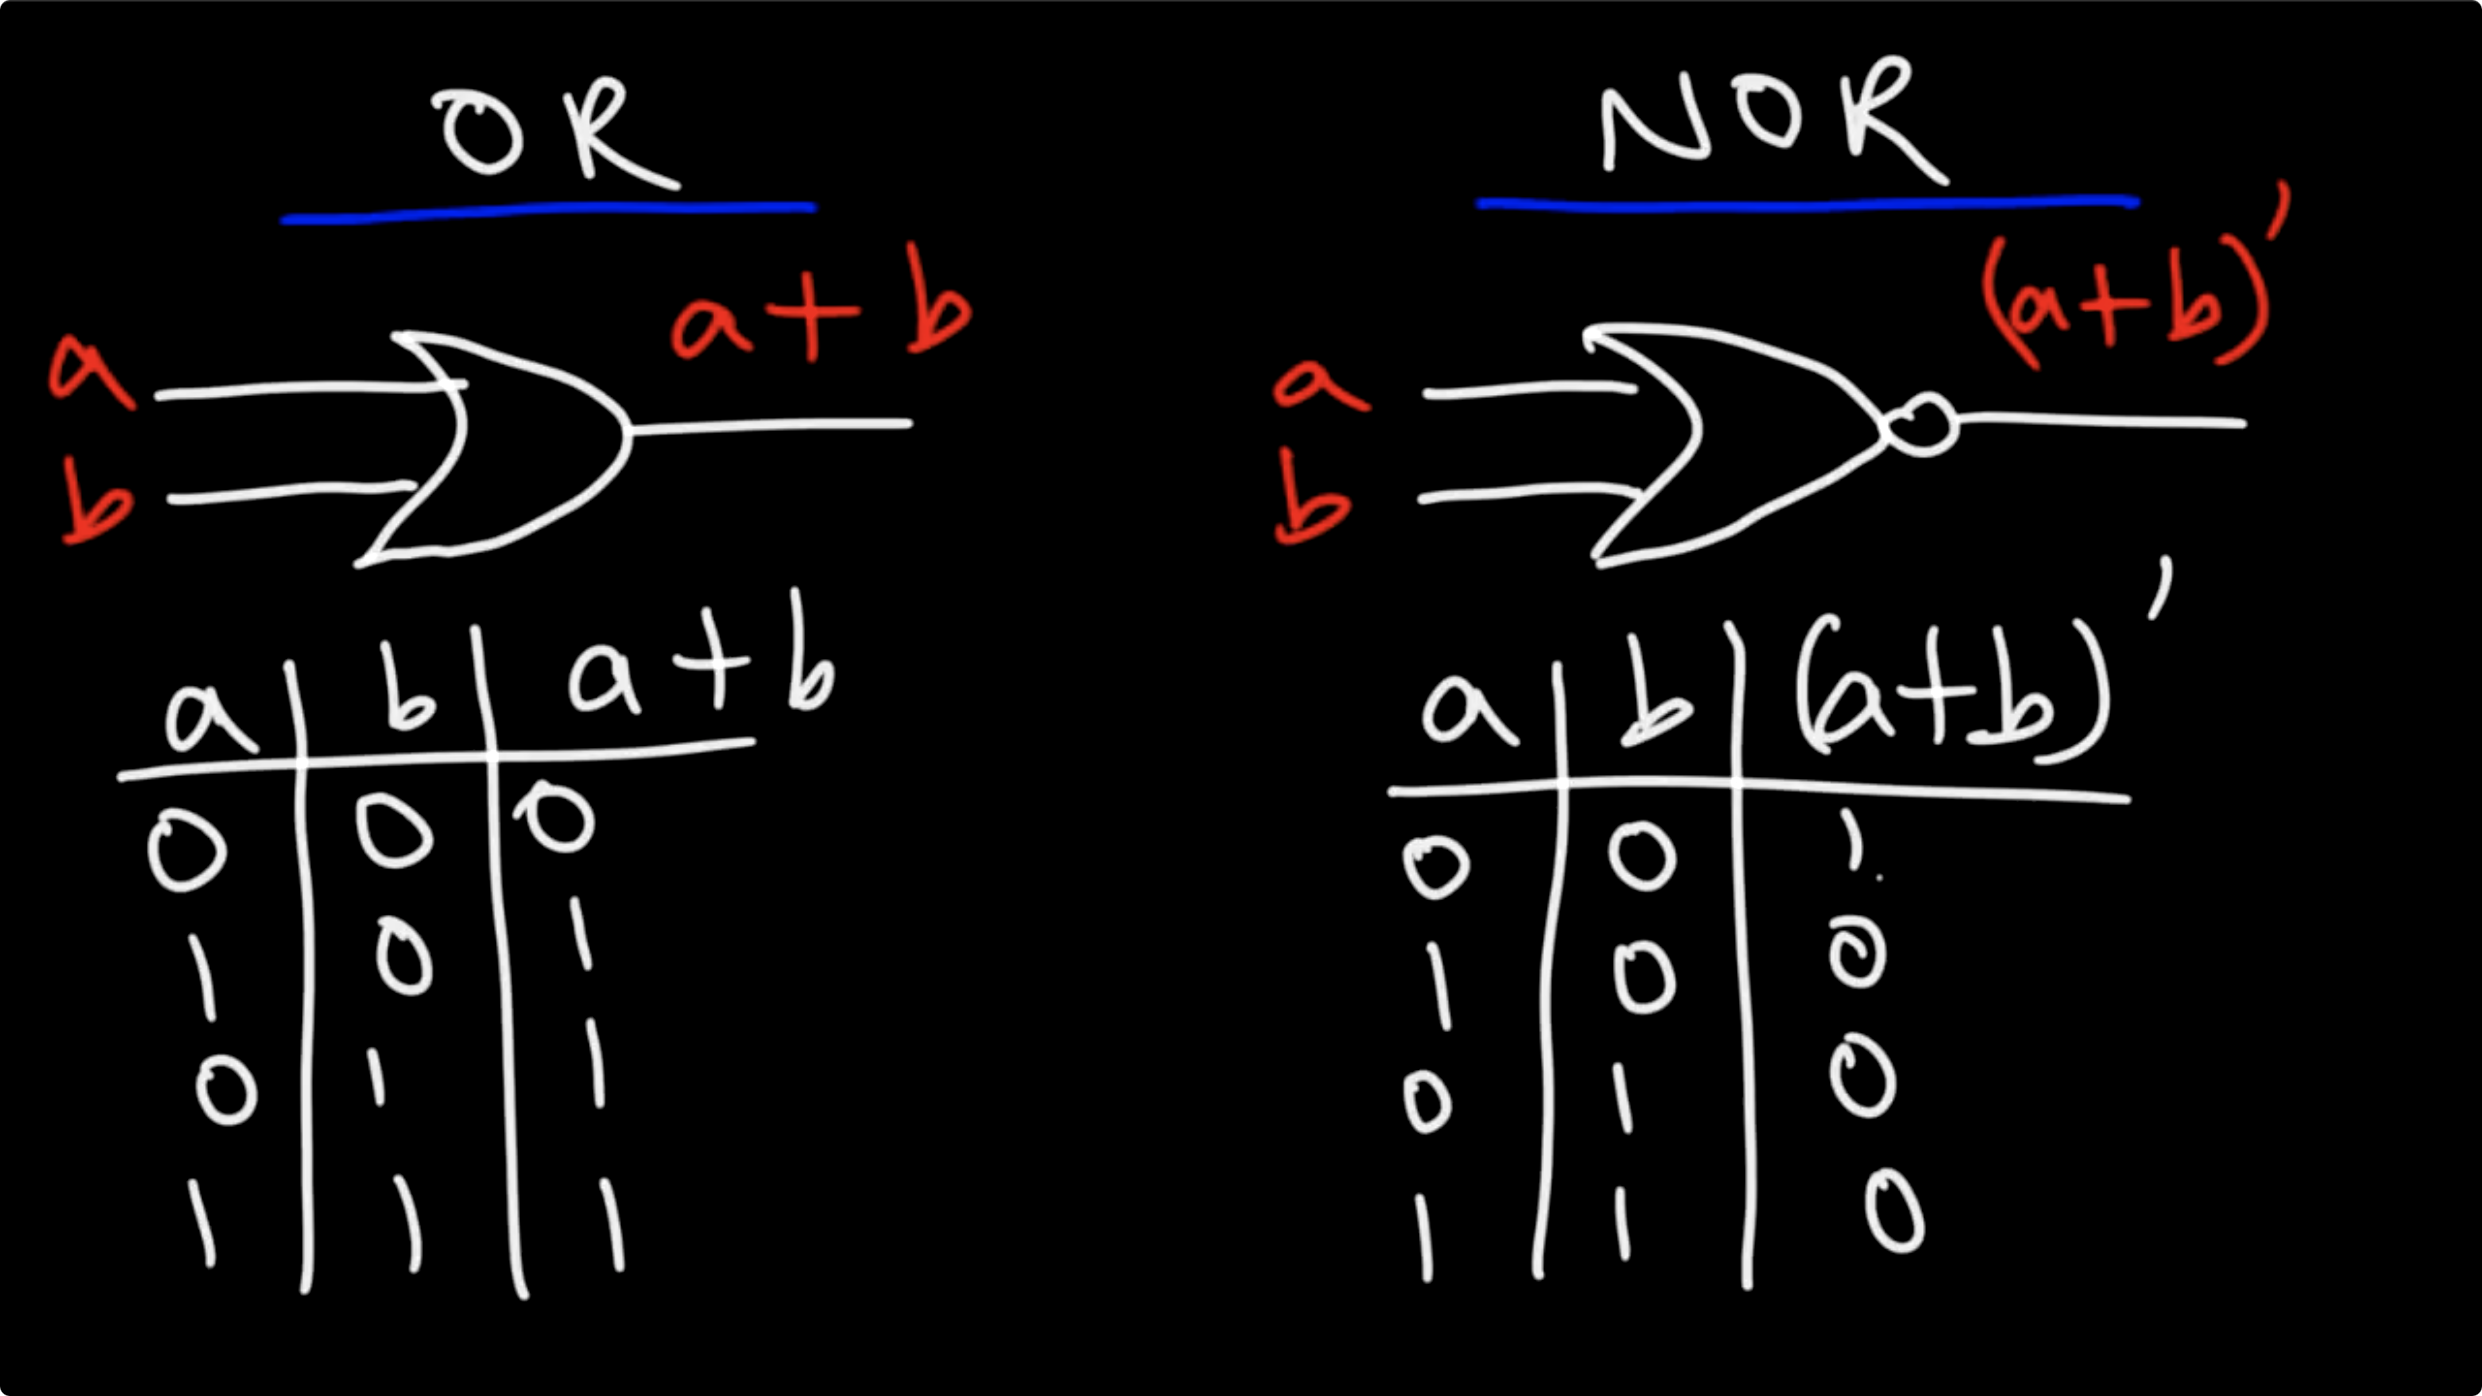 OR
a + b
a
b
a | b | a + b
0 | 0 | 0
1 | 0 | 1
0 | 1 | 1
1 | 1 | 1
NOR
(a+b)'
a
b
a | b | (a+b)'
0 | 0 | 1
1 | 0 | 0
0 | 1 | 0
1 | 1 | 0